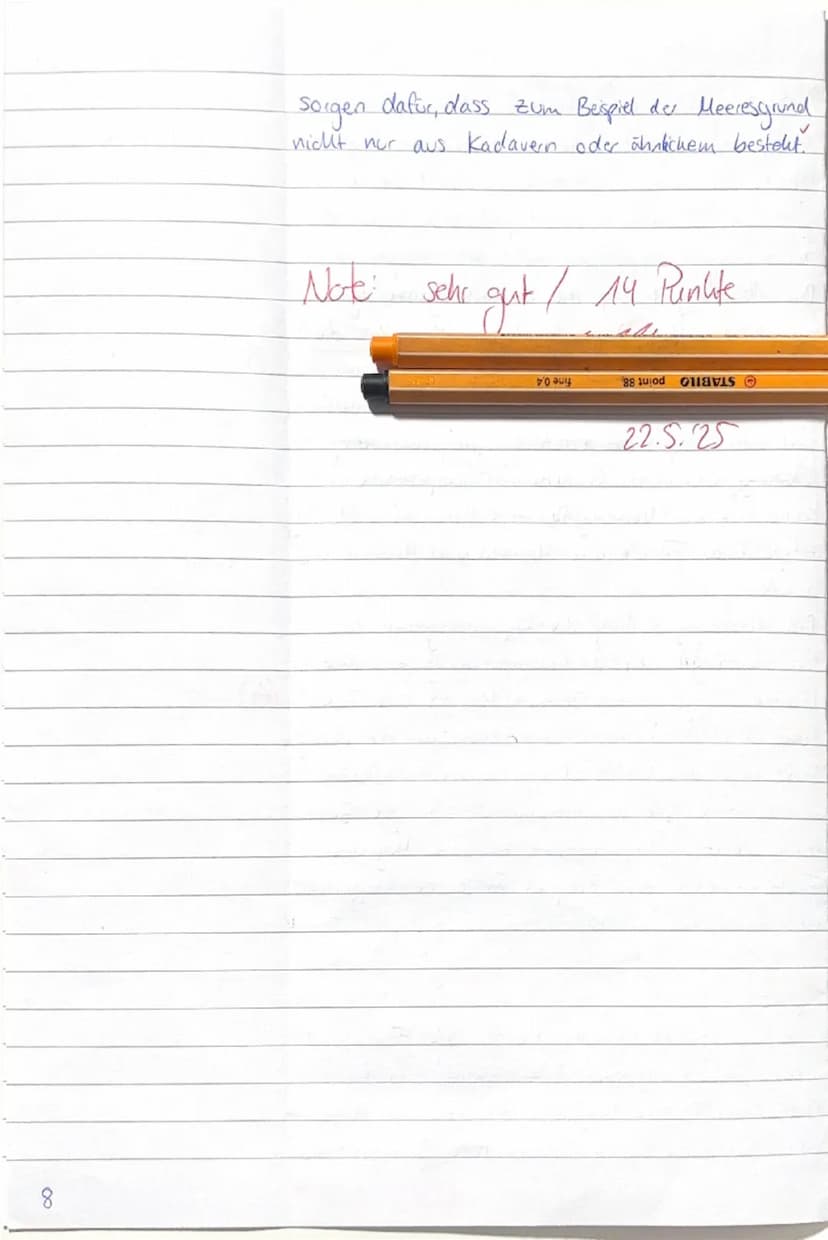 sorgen dafür, dass zum Beispiel der Meeresgrund
nicht nur aus Kadavern oder ähnlichem besteht.
Note: sehr gut / 14 Punkte
STABILO point 88 fine 0.4
22.5.'25
8